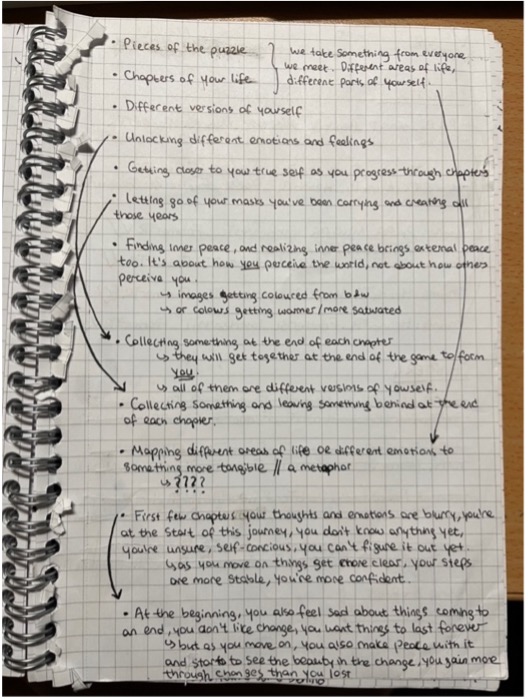 • Pieces of the puzzle
• Chapters of your life
we take something from everyone
we meet. Different areas of life,
different parts of yourself.
• Different versions of yourself
• Unlocking different emotions and feelings
• Getting closer to your true self as you progress through chapters
• Letting go of your masks you've been carrying and creating all
those years
• Finding inner peace, and realizing inner peace brings external peace
too. It's about how you perceive the world, not about how others
perceive you.
↳ images getting coloured from b&w
↳ or colours getting warmer/more saturated
• Collecting something at the end of each chapter
↳ they will get together at the end of the game to form
you.
↳ all of them are different versions of yourself.
• Collecting something and leaving something behind at the end
of each chapter.
• Mapping different areas of life or different emotions to
something more tangible // a metaphor
↳ ????
• First few chapters your thoughts and emotions are blurry, you're
at the start of this journey, you don't know anything yet,
you're unsure, self-concious, you can't figure it out yet.
↳ as you move on things get more clear, your steps
are more stable, you're more confident.
• At the beginning, you also feel sad about things coming to
an end, you don't like change, you want things to last forever
↳ but as you move on, you also make peace with it
and starts to see the beauty in the change, you gain more
through changes than you lost